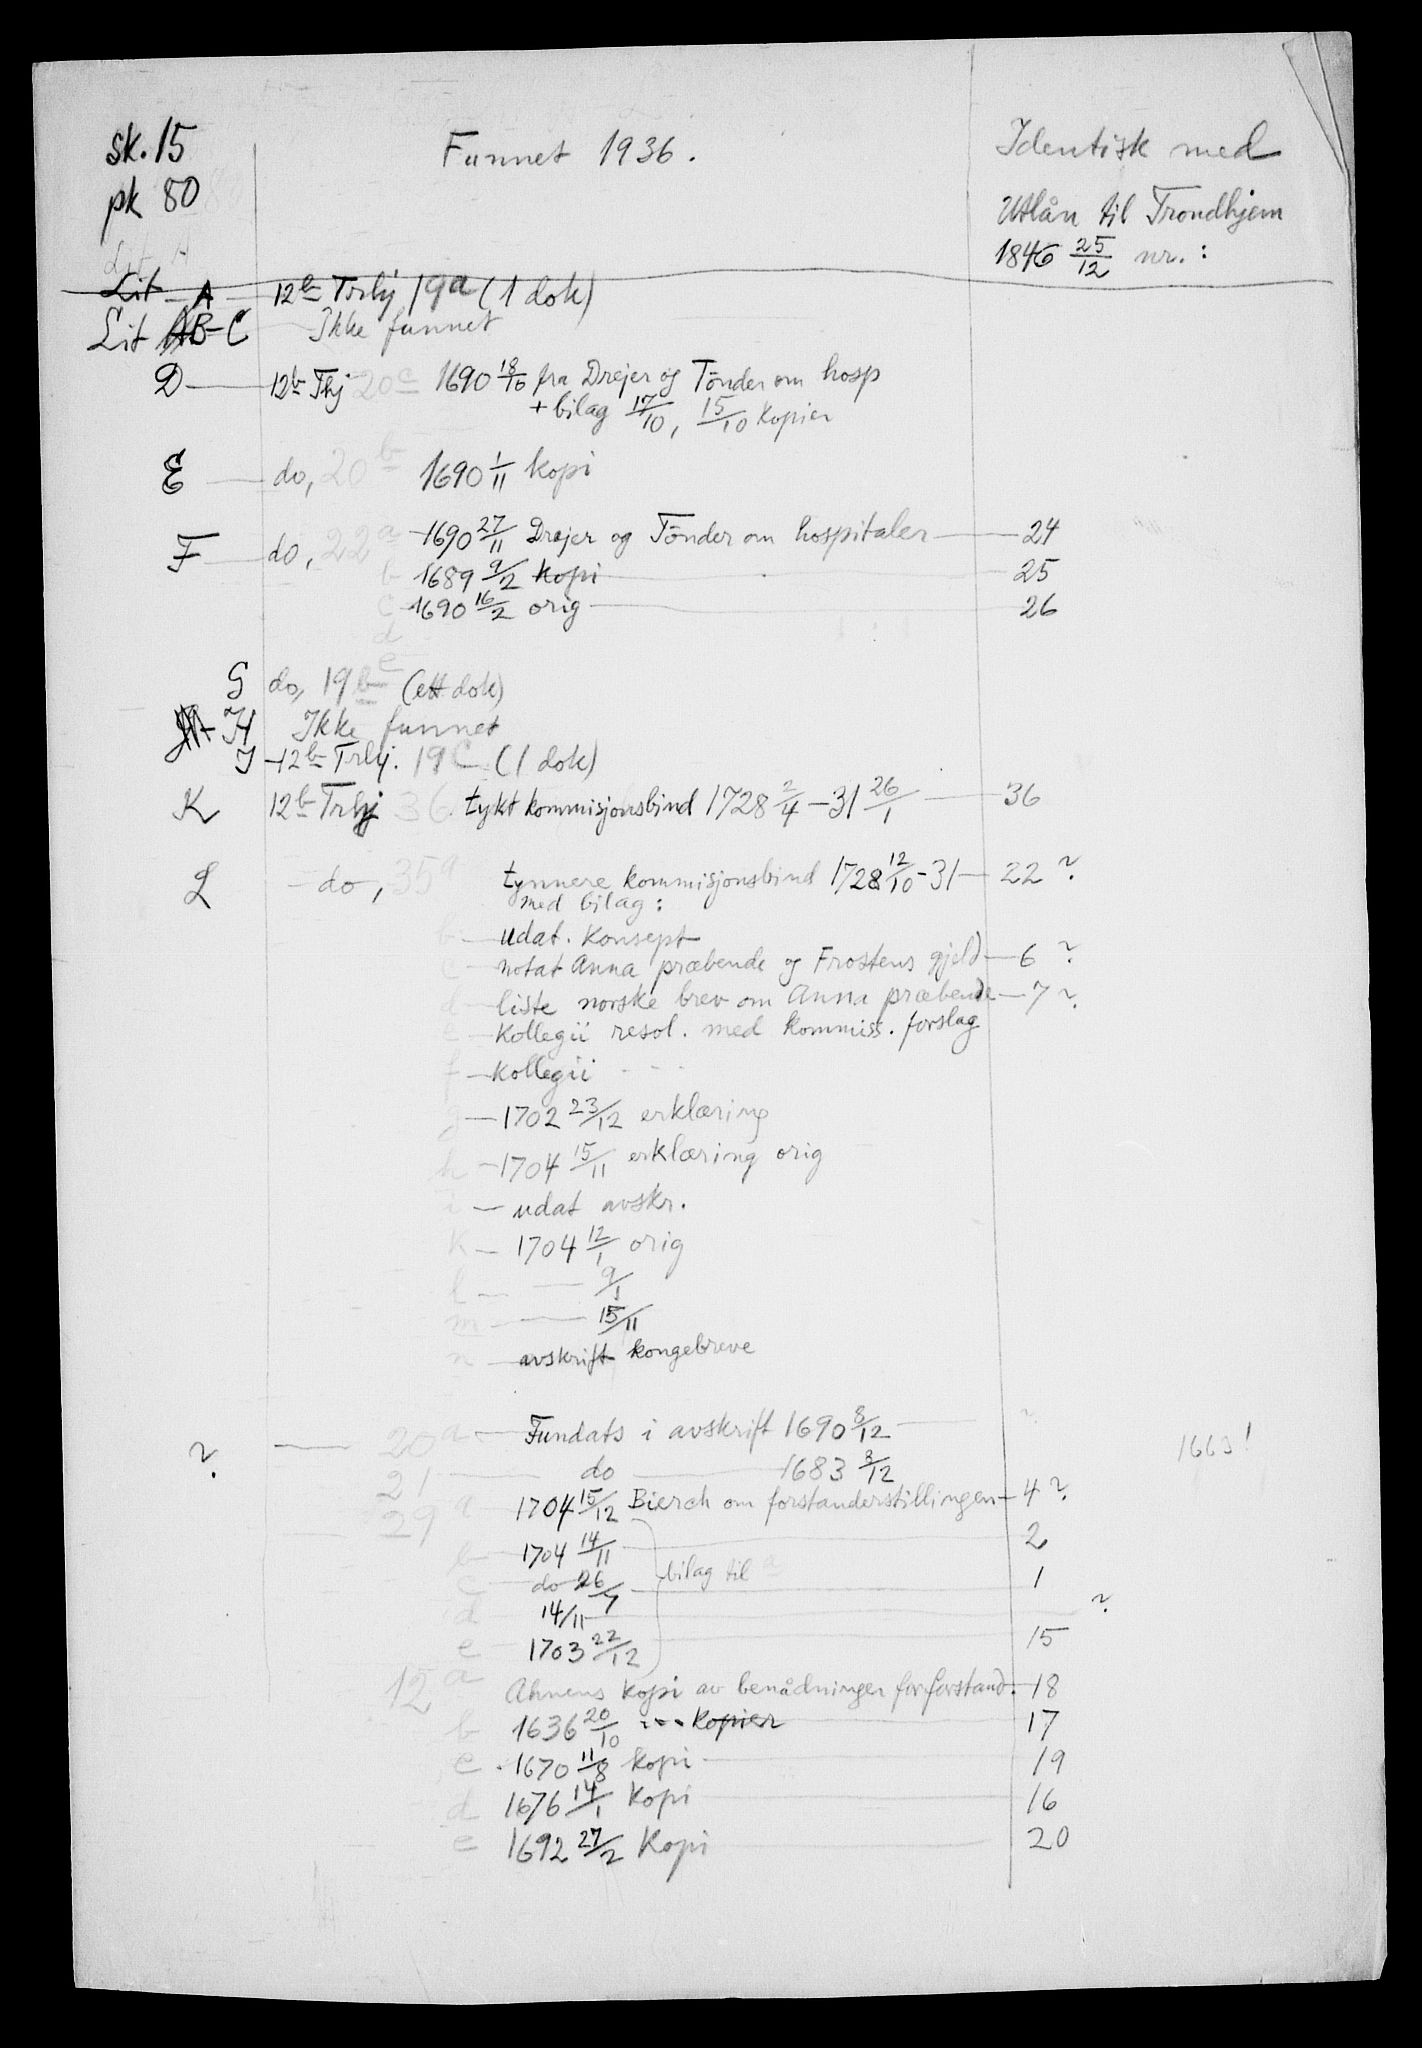 sk. 15
pk 80
Funnet 1936.
Identisk med
Utlån til Trondhjem
1846 25/12 nr. :
Lit A — 12b Trhj 19a (1 dok)
Lit B-C — Ikke funnet
D — 12b Thj 20c 1690 18/10 fra Drejer og Tönder om hosp
+ bilag 17/10, 15/10 kopier
E — do, 20b 1690 1/11 kopi
F — do, 22a 1690 27/11 Drejer og Tönder om hospitaler — 24
b 1689 9/2 kopi — 25
c 1690 16/2 orig — 26
d
e
G do, 19b (ett dok)
H Ikke funnet
J — 12b Trhj. 19c (1 dok)
K 12b Trhj 36 tykt kommisjonsbind 1728 2/4 – 31 26/1 — 36
L — do, 35a tynnere kommisjonsbind 1728 12/10 – 31 — 22 ?
med bilag :
b — udat. konsept
c — notat Anna præbende og Frostens gjeld — 6 ?
d — liste norske brev om Anna præbende — 7 ?
e — Kollegii resol. med kommiss. forslag
f — Kollegii - - -
g — 1702 23/12 erklæring
h — 1704 15/11 erklæring orig
i — udat avskr.
k — 1704 12/1 orig
l — — 9/1
m — — 15/11
n — avskrift kongebreve
? — 20a — Fundats i avskrift 1690 8/12 — ?
1663!
21 — do — 1683 8/12
29a 1704 15/12 Bierch om forstanderstillingen — 4 ?
b — 1704 14/11 — 2
c — do 26/7 — 1
bilag til a
d — 14/11 — ?
e — 1703 22/12 — 15
12a Ahnens kopi av benådningen for forstand. — 18
b 1636 20/10 - - - kopier — 17
c 1670 11/8 kopi — 19
d 1676 14/1 kopi — 16
e 1692 27/2 Kopi — 20